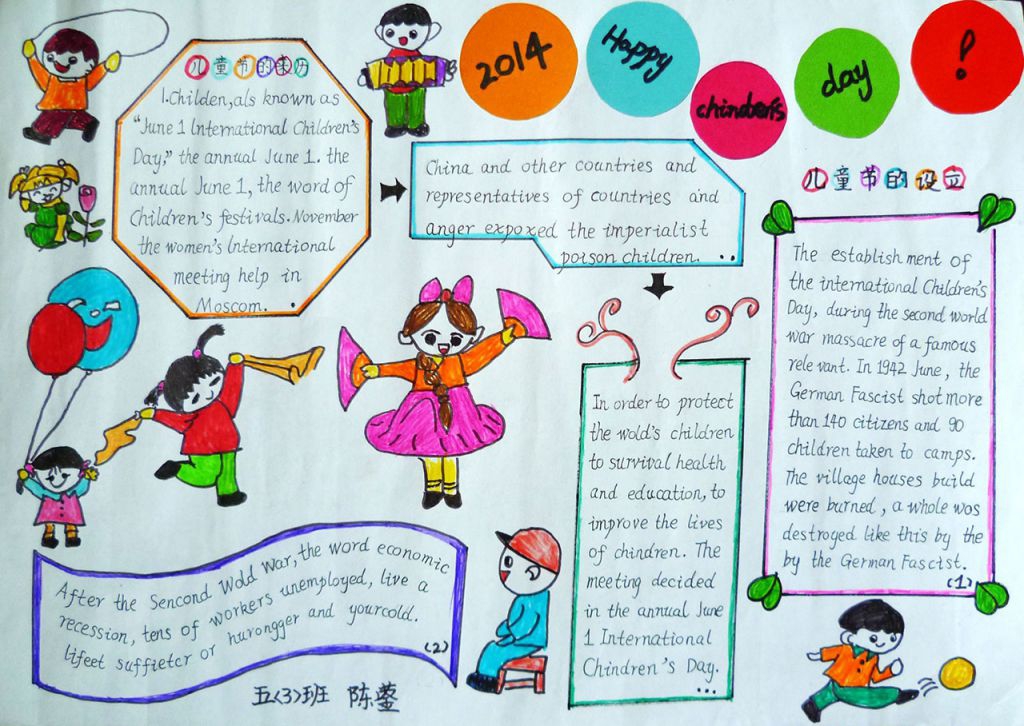 2014
Happy
chindren's
day
!
儿童节的来历
1.Childen,als known as
"June 1 International Children's
Day," the annual June 1. the
annual June 1, the word of
Children's festivals. November
the women's International
meeting help in
Moscom. .
China and other countries and
representatives of countries and
anger expoxed the imperialist
poison children. ..
In order to protect
the wold's children
to survival health
and education, to
improve the lives
of chindren. The
meeting decided
in the annual June
1 International
Chindren's Day.
...
儿童节的设立
The establishment of
the international Children's
Day, during the second world
war massacre of a famous
rele vant. In 1942 June, the
German Fascist shot more
than 140 citizens and 90
children taken to camps.
The village houses build
were burned, a whole wos
destroged like this by the
by the German Fascist.
(1)
After the Sencond Wold War, the word economic
recession, tens of workers unemployed, live a
lifeet suffietcr or hurongger and yourcold.
(2)
五(3)班 陈蓥